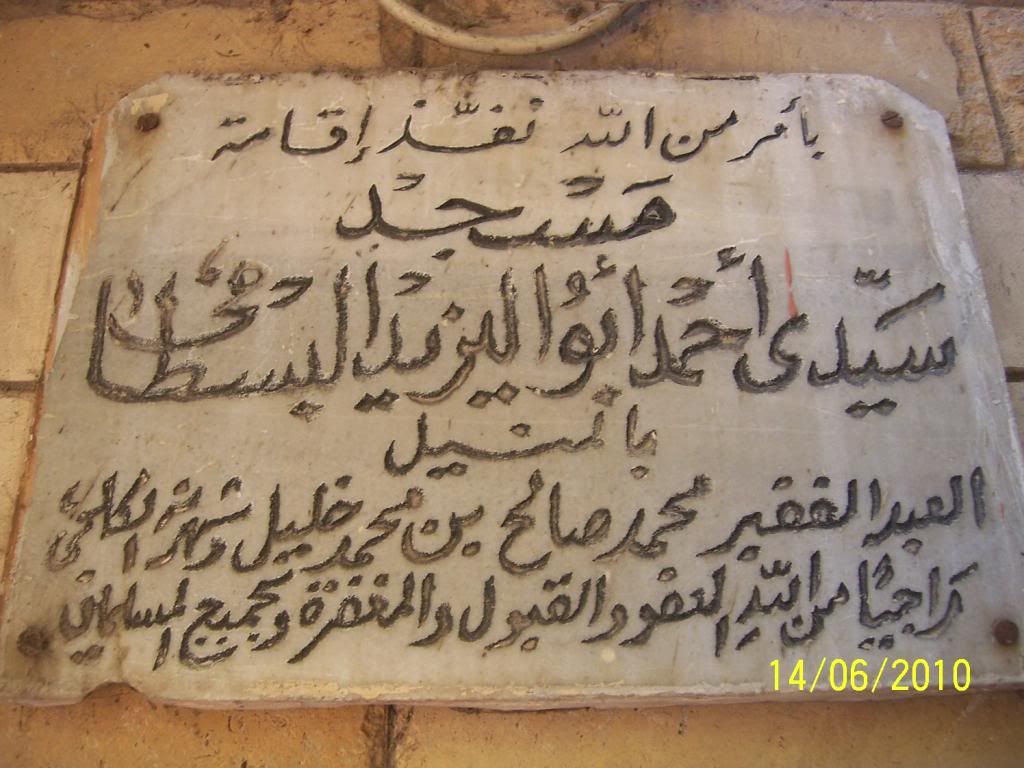 بأمر من الله نفّذ إقامة
مسجد
سيّدى أحمد أبو اليزيد البسطامى
بالمنيل
العبد الفقير محمد صالح بن محمد خليل وشهرته الكلحى
رَاجيًا من اللّه العفو والقبول والمغفرة ولجميع المسلمين
14/06/2010